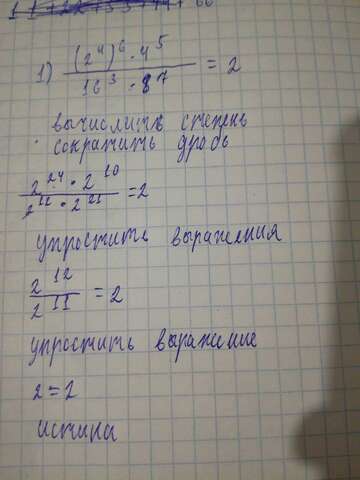 1) (2^4)^6 · 4^5 / 16^3 · 8^7 = 2
вычислить степень
сократить дробь
2^24 · 2^10 / 2^12 · 2^21 = 2
упростить выражения
2^12 / 2^11 = 2
упростить выражение
2 = 2
истина